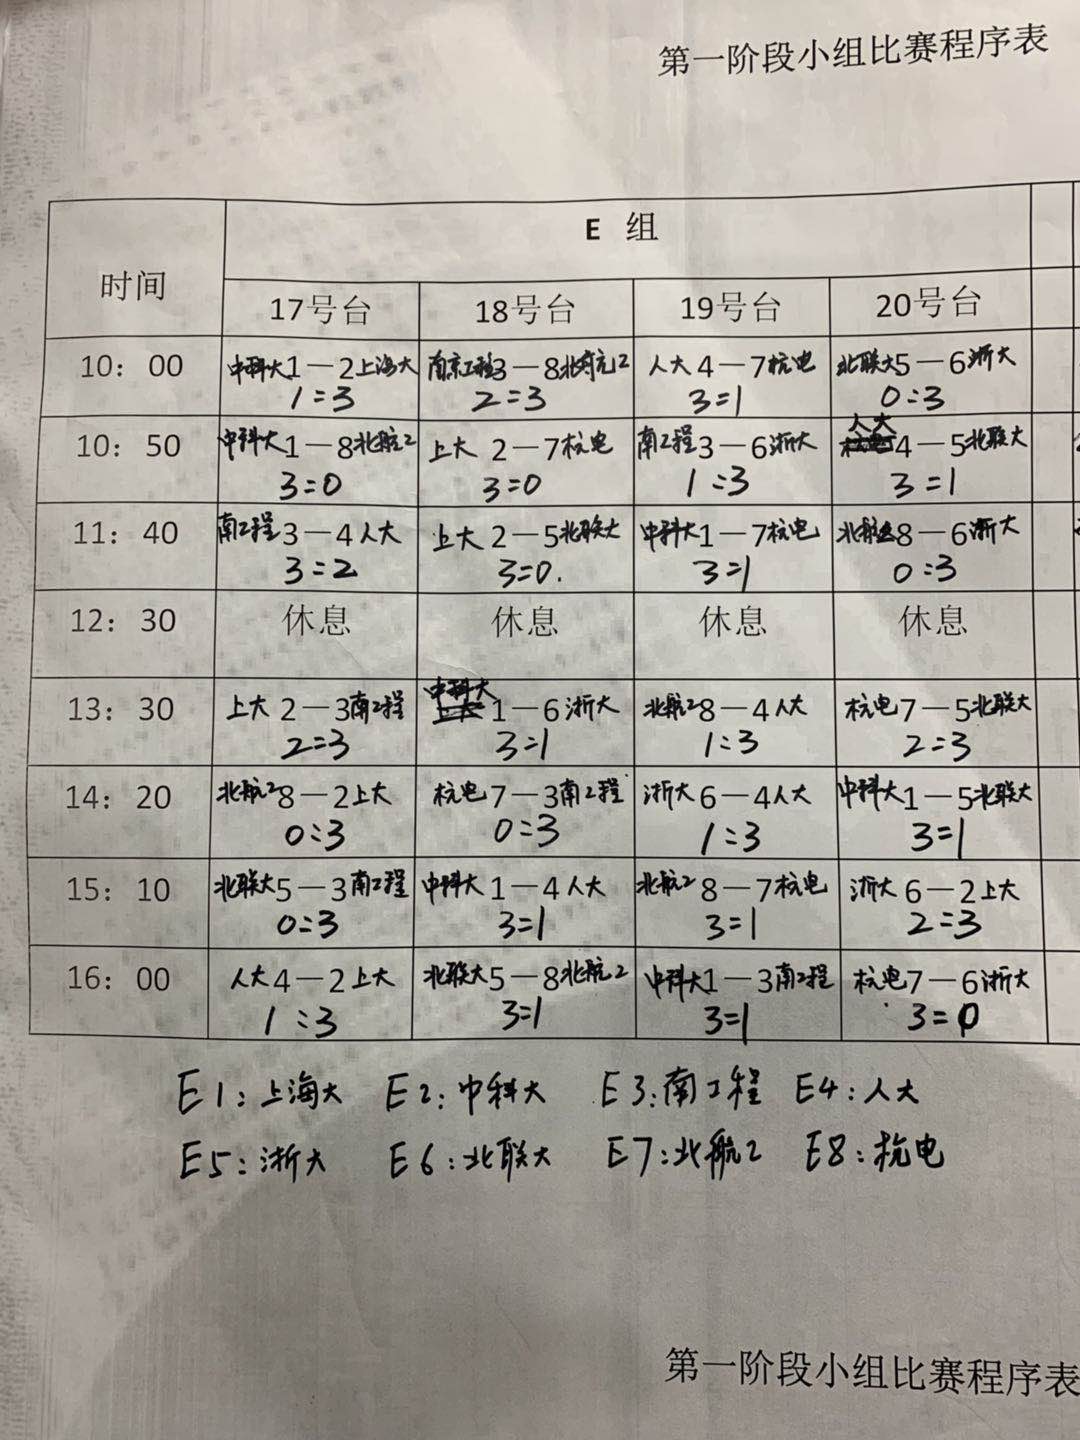 第一阶段小组比赛程序表
时间 E 组
17号台 18号台 19号台 20号台
10：00 中科大1—2上海大 南京工程3—8北航2 人大4—7杭电 北联大5—6浙大
1:3 2:3 3:1 0:3
人大
10：50 中科大1—8北航2 上大2—7杭电 南工程3—6浙大 4—5北联大
3:0 3:0 1:3 3:1
11：40 南工程3—4人大 上大2—5北联大 中科大1—7杭电 北航28—6浙大
3:2 3:0. 3:1 0:3
12：30 休息 休息 休息 休息
中科大
13：30 上大2—3南工程 1—6浙大 北航28—4人大 杭电7—5北联大
2:3 3:1 1:3 2:3
14：20 北航28—2上大 杭电7—3南工程 浙大6—4人大 中科大1—5北联大
0:3 0:3 1:3 3:1
15：10 北联大5—3南工程 中科大1—4人大 北航28—7杭电 浙大6—2上大
0:3 3:1 3:1 2:3
16：00 人大4—2上大 北联大5—8北航2 中科大1—3南工程 杭电7—6浙大
1:3 3:1 3:1 3:0
E1:上海大 E2:中科大 E3:南工程 E4:人大
E5:浙大 E6:北联大 E7:北航2 E8:杭电
第一阶段小组比赛程序表